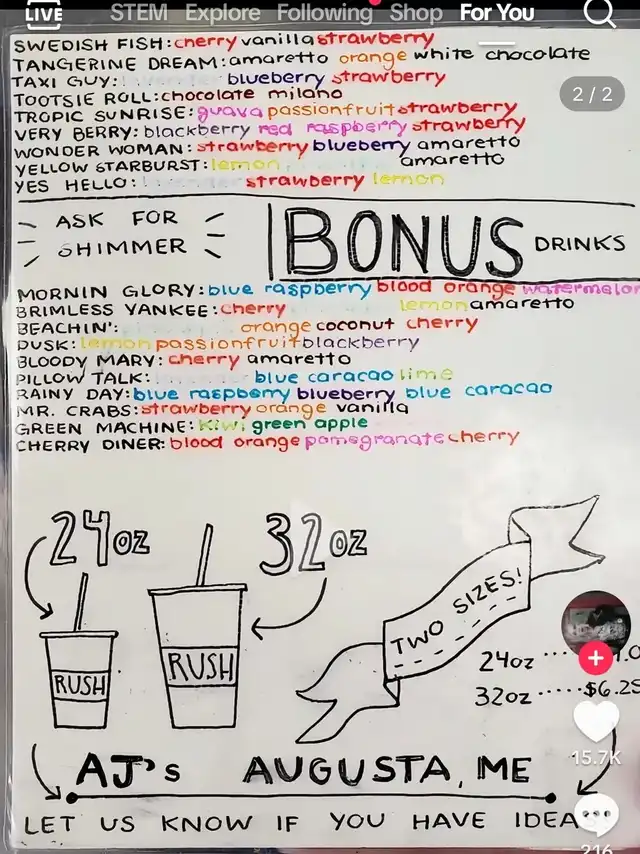 LIVE STEM Explore Following Shop For You
SWEDISH FISH: cherry vanilla strawberry
TANGERINE DREAM: amaretto orange white chocolate
2 / 2
TAXI GUY: blueberry strawberry
TOOTSIE ROLL: chocolate milano
TROPIC SUNRISE: guava passionfruit strawberry
VERY BERRY: blackberry red raspberry strawberry
WONDER WOMAN: strawberry blueberry amaretto
YELLOW STARBURST: lemon amaretto
YES HELLO: strawberry lemon
ASK FOR SHIMMER
BONUS DRINKS
MORNIN GLORY: blue raspberry blood orange watermelon
BRIMLESS YANKEE: cherry lemon amaretto
BEACHIN': orange coconut cherry
DUSK: lemon passionfruit blackberry
BLOODY MARY: cherry amaretto
PILLOW TALK: blue caracao lime
RAINY DAY: blue raspberry blueberry blue caracao
MR. CRABS: strawberry orange vanilla
GREEN MACHINE: kiwi green apple
CHERRY DINER: blood orange pomegranate cherry
24oz 32oz
RUSH RUSH
TWO SIZES!
24oz ....
32oz ..... $6.25
15.7K
AJ's AUGUSTA, ME
LET US KNOW IF YOU HAVE IDEA
216